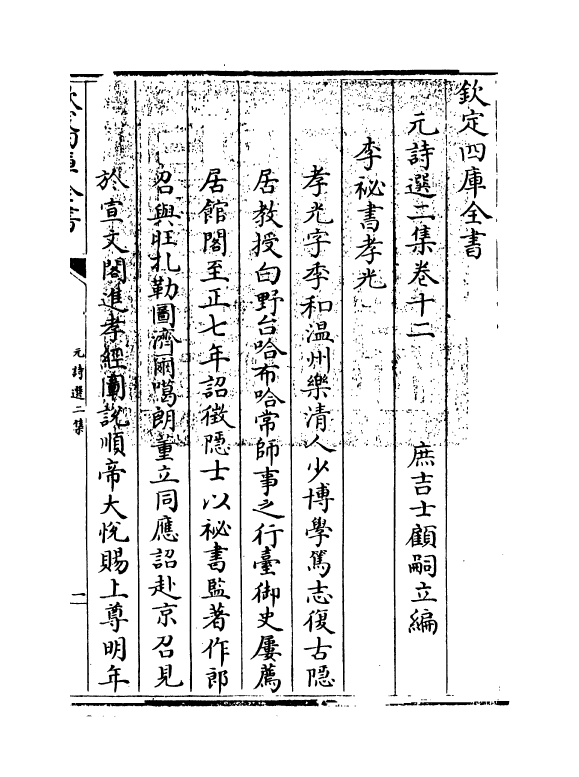 欽定四庫全書
元詩選二集卷十二
庶吉士顧嗣立編
李祕書孝光
孝光字季和温州樂清人少博學篤志復古隠
居教授白野台哈布哈常師事之行臺御史屢薦
居館閣至正七年詔徵隠士以祕書監著作郎
召與旺扎勒圖濟爾噶朗董立同應詔赴京召見
於宣文閣進孝經圖說順帝大悅賜上尊明年
欽定四庫全書
元詩選二集